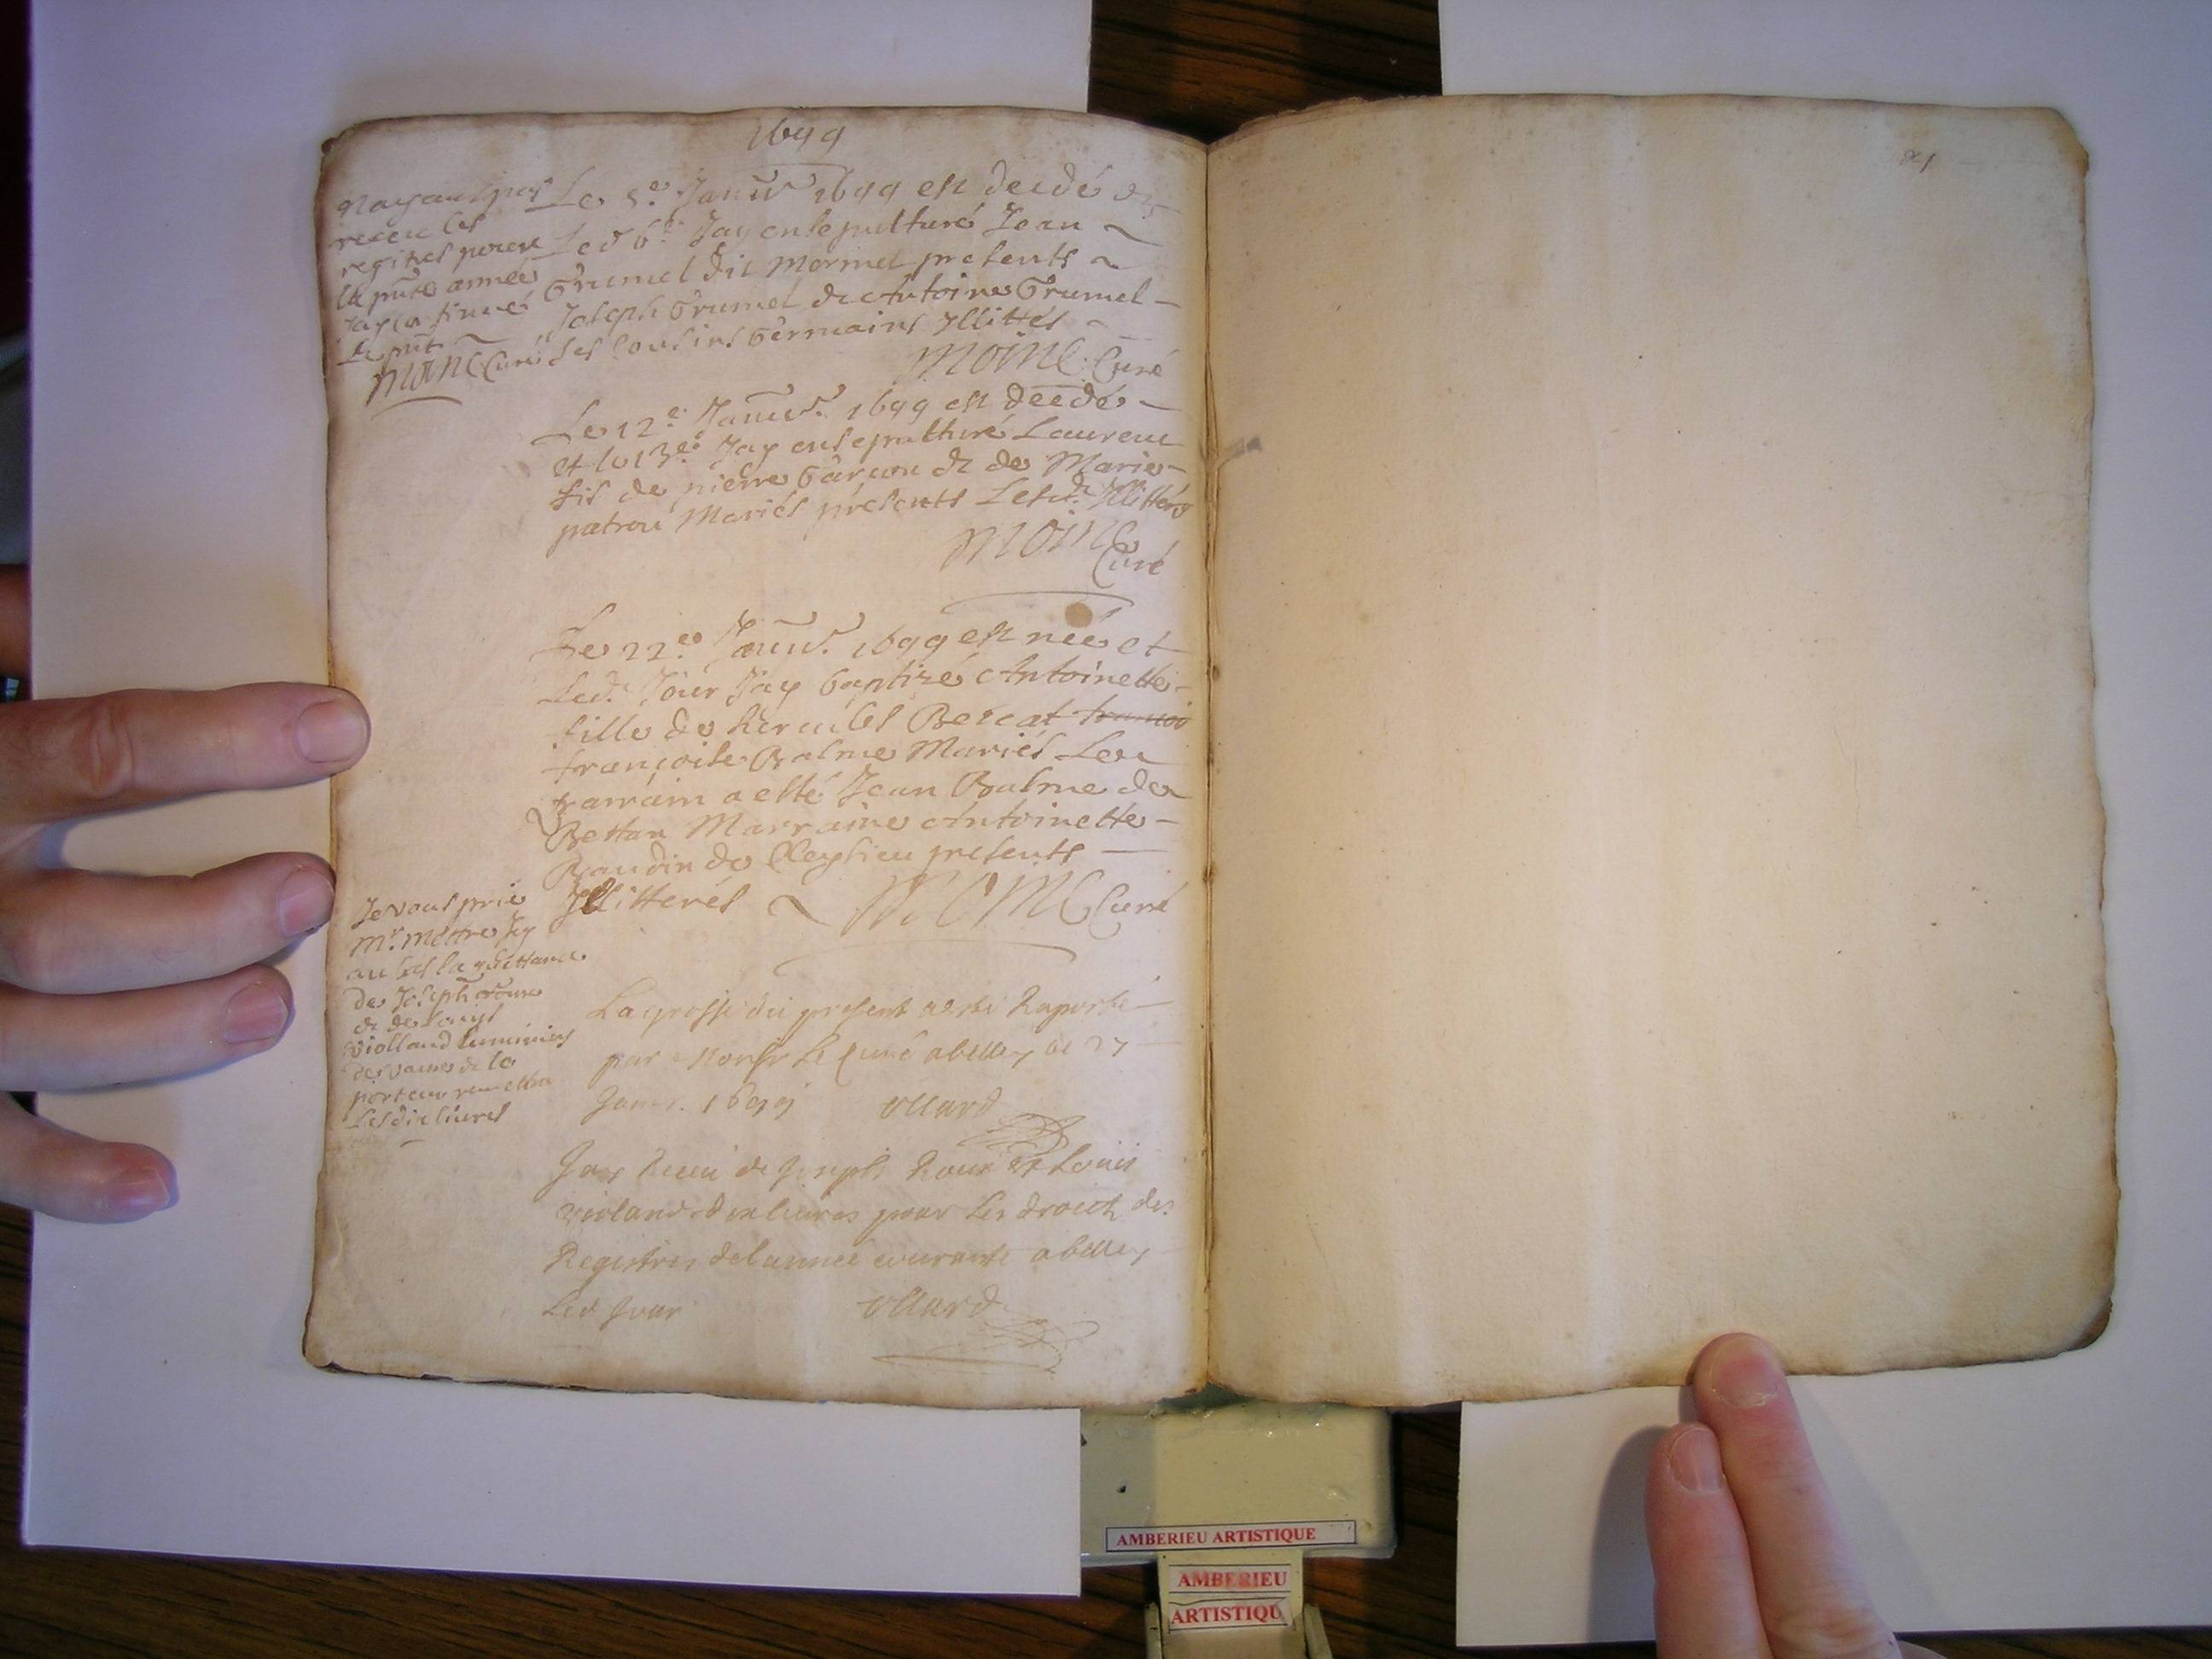 1699
Nayant pas
receu les
registres pour
la pnte année
jay continué
le pnt
Moine Curé
Le 5e Janvr 1699 est decedé &
Led 6e Jay ensepulturé Jean
Grumel dit Mormel presents
Joseph Grumel & Antoine Grumel
ses cousins Germains Illittés
Moine Curé
Le 12e Janvr 1699 est decedé
et le 13e Jay ensepulturé Laurent
fis de pierre Garçon & de Marie
patrou Mariés présents Lesd. Illittérés
Moine
Curé
Le 22e Janvr. 1699 est née et
Led. Jour Jay baptizé Antoinette
fille de hercules Bercat
françoise Balme Mariés Le
parrain a esté Jean Balme de
Bettan Marraine Antoinette
Baudin de Cleysieu presents
Illitterés Moine Curé
Je vous prie
Mr. Mettre Icy
au bas la quittance
de Joseph Roux
& de Louys
Violland luminiers
de Vaux & le
porteur remettra
les dix livres
La grosse du present a esté Raporté
par Monsr Le Curé a belley ce 27
Janvr. 1699 Ollard
Jay Receu de Joseph Roux et Louis
violand dix livres pour les droicts des
Registres de l année courante a belley
Led Jour Ollard
AMBERIEU ARTISTIQUE
AMBERIEU
ARTISTIQU